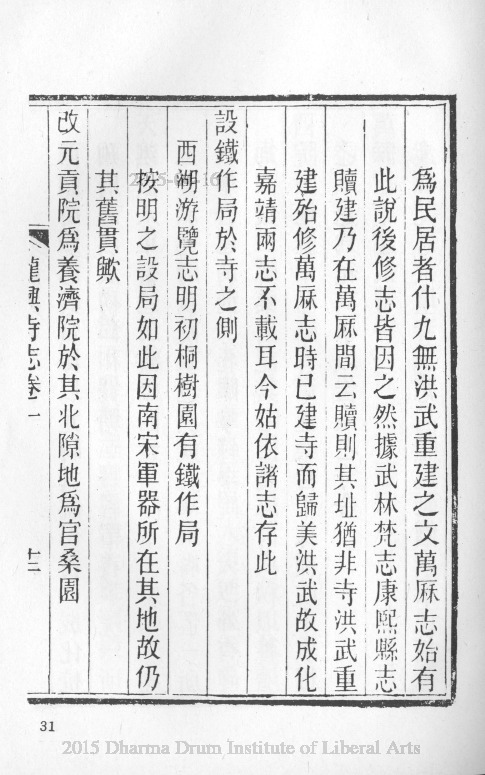 爲民居者什九無洪武重建之文萬厤志始有
此說後修志皆因之然據武林梵志康熙縣志
贖建乃在萬厤間云贖則其址猶非寺洪武重
建殆修萬厤志時已建寺而歸美洪武故成化
嘉靖兩志不載耳今姑依諸志存此
設鐵作局於寺之側
西湖游覽志明初桐樹園有鐵作局
按明之設局如此因南宋軍器所在其地故仍
其舊貫歟
改元貢院爲養濟院於其北隙地爲官桑園
龍興寺志卷一
十二
31
2015 Dharma Drum Institute of Liberal Arts